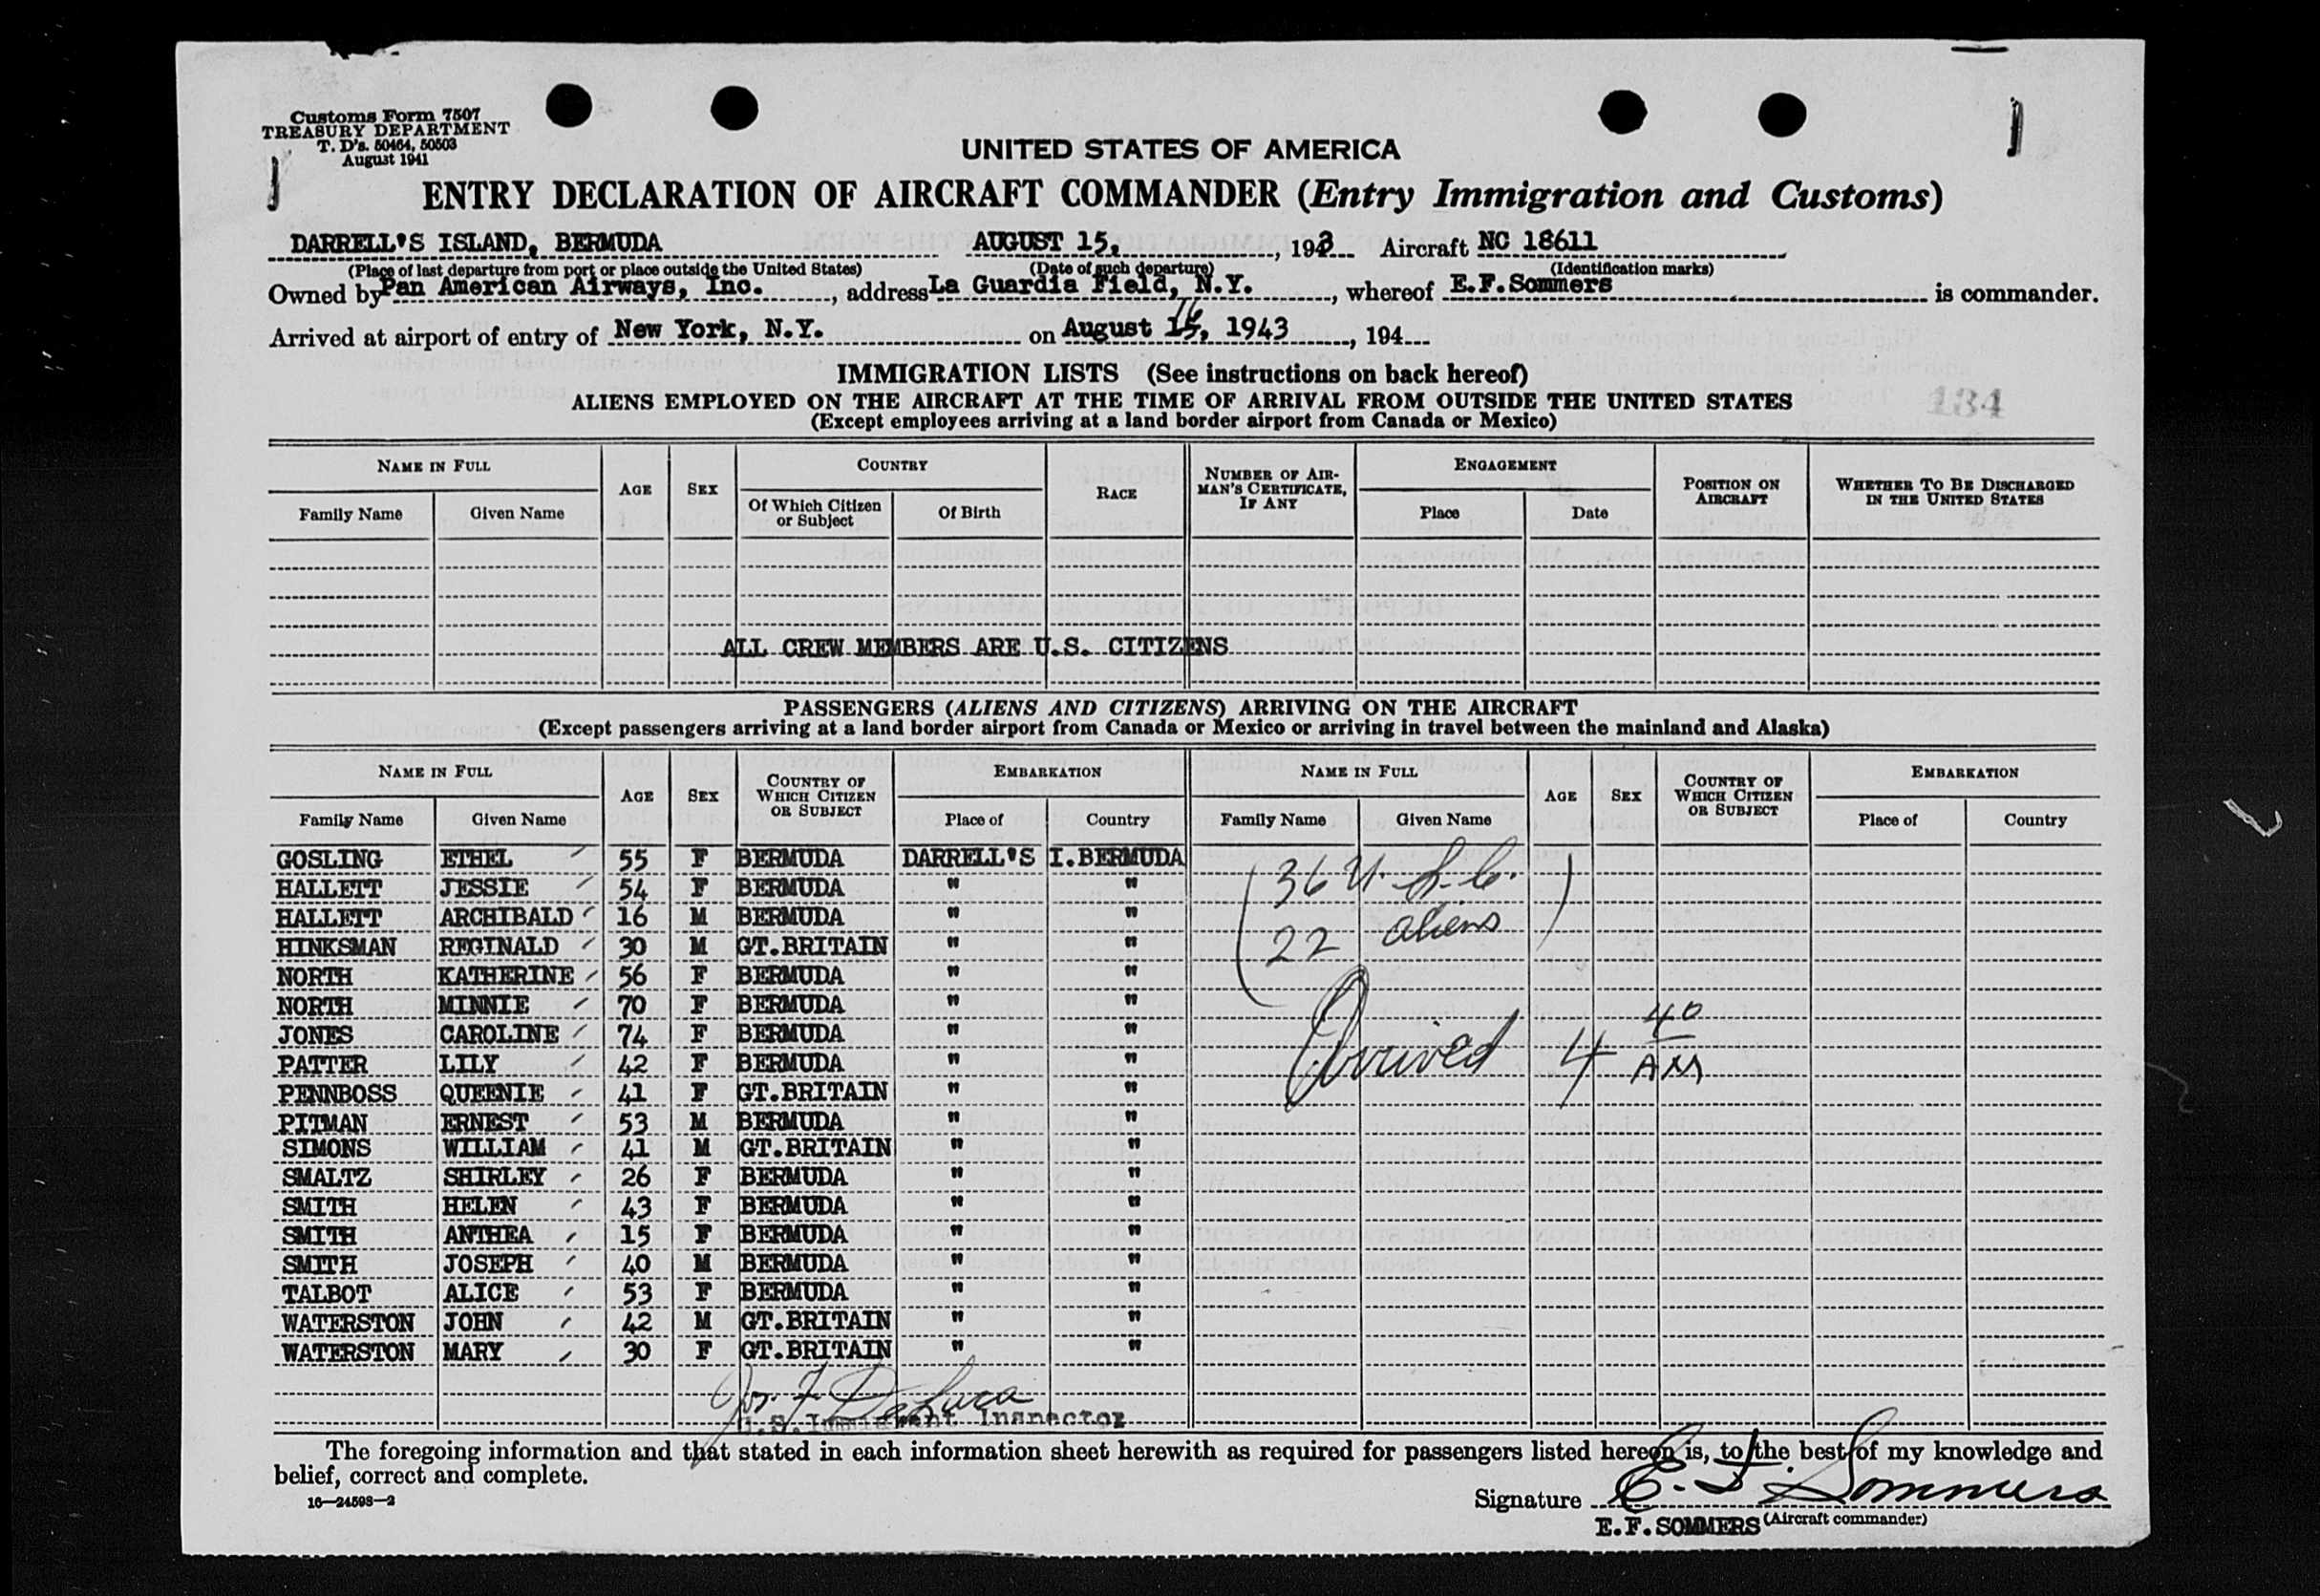 Customs Form 7507
TREASURY DEPARTMENT
T. D's. 50464, 50503
August 1941
UNITED STATES OF AMERICA
ENTRY DECLARATION OF AIRCRAFT COMMANDER (Entry Immigration and Customs)
DARRELL'S ISLAND, BERMUDA AUGUST 15, , 1943 Aircraft NC 18611
(Place of last departure from port or place outside the United States) (Date of such departure) (Identification marks)
Owned by Pan American Airways, Inc. , address La Guardia Field, N.Y. , whereof E.F.Sommers is commander.
16
Arrived at airport of entry of New York, N.Y. on August 15, 1943 , 194
IMMIGRATION LISTS (See instructions on back hereof)
ALIENS EMPLOYED ON THE AIRCRAFT AT THE TIME OF ARRIVAL FROM OUTSIDE THE UNITED STATES
134
(Except employees arriving at a land border airport from Canada or Mexico)
NAME IN FULL AGE SEX COUNTRY RACE NUMBER OF AIR-MAN'S CERTIFICATE, IF ANY ENGAGEMENT POSITION ON AIRCRAFT WHETHER TO BE DISCHARGED IN THE UNITED STATES
Family Name Given Name Of Which Citizen or Subject Of Birth Place Date
ALL CREW MEMBERS ARE U.S. CITIZENS
PASSENGERS (ALIENS AND CITIZENS) ARRIVING ON THE AIRCRAFT
(Except passengers arriving at a land border airport from Canada or Mexico or arriving in travel between the mainland and Alaska)
NAME IN FULL AGE SEX COUNTRY OF WHICH CITIZEN OR SUBJECT EMBARKATION NAME IN FULL AGE SEX COUNTRY OF WHICH CITIZEN OR SUBJECT EMBARKATION
Family Name Given Name Place of Country Family Name Given Name Place of Country
GOSLING ETHEL 55 F BERMUDA DARRELL'S I.BERMUDA
HALLETT JESSIE 54 F BERMUDA " " (36 U.S.C.)
HALLETT ARCHIBALD 16 M BERMUDA " "
HINKSMAN REGINALD 30 M GT.BRITAIN " " 22 aliens
NORTH KATHERINE 56 F BERMUDA " "
NORTH MINNIE 70 F BERMUDA " "
JONES CAROLINE 74 F BERMUDA " " Arrived 4 40
PATTER LILY 42 F BERMUDA " " AM
PENNBOSS QUEENIE 41 F GT.BRITAIN " "
PITMAN ERNEST 53 M BERMUDA " "
SIMONS WILLIAM 41 M GT.BRITAIN " "
SMALTZ SHIRLEY 26 F BERMUDA " "
SMITH HELEN 43 F BERMUDA " "
SMITH ANTHEA 15 F BERMUDA " "
SMITH JOSEPH 40 M BERMUDA " "
TALBOT ALICE 53 F BERMUDA " "
WATERSTON JOHN 42 M GT.BRITAIN " "
WATERSTON MARY 30 F GT.BRITAIN " "
Jos. F. DeLuca
U.S. Immigrant Inspector
The foregoing information and that stated in each information sheet herewith as required for passengers listed hereon is, to the best of my knowledge and
belief, correct and complete.
16—24598—2
Signature E. F. Sommers
E.F.SOMMERS (Aircraft commander)